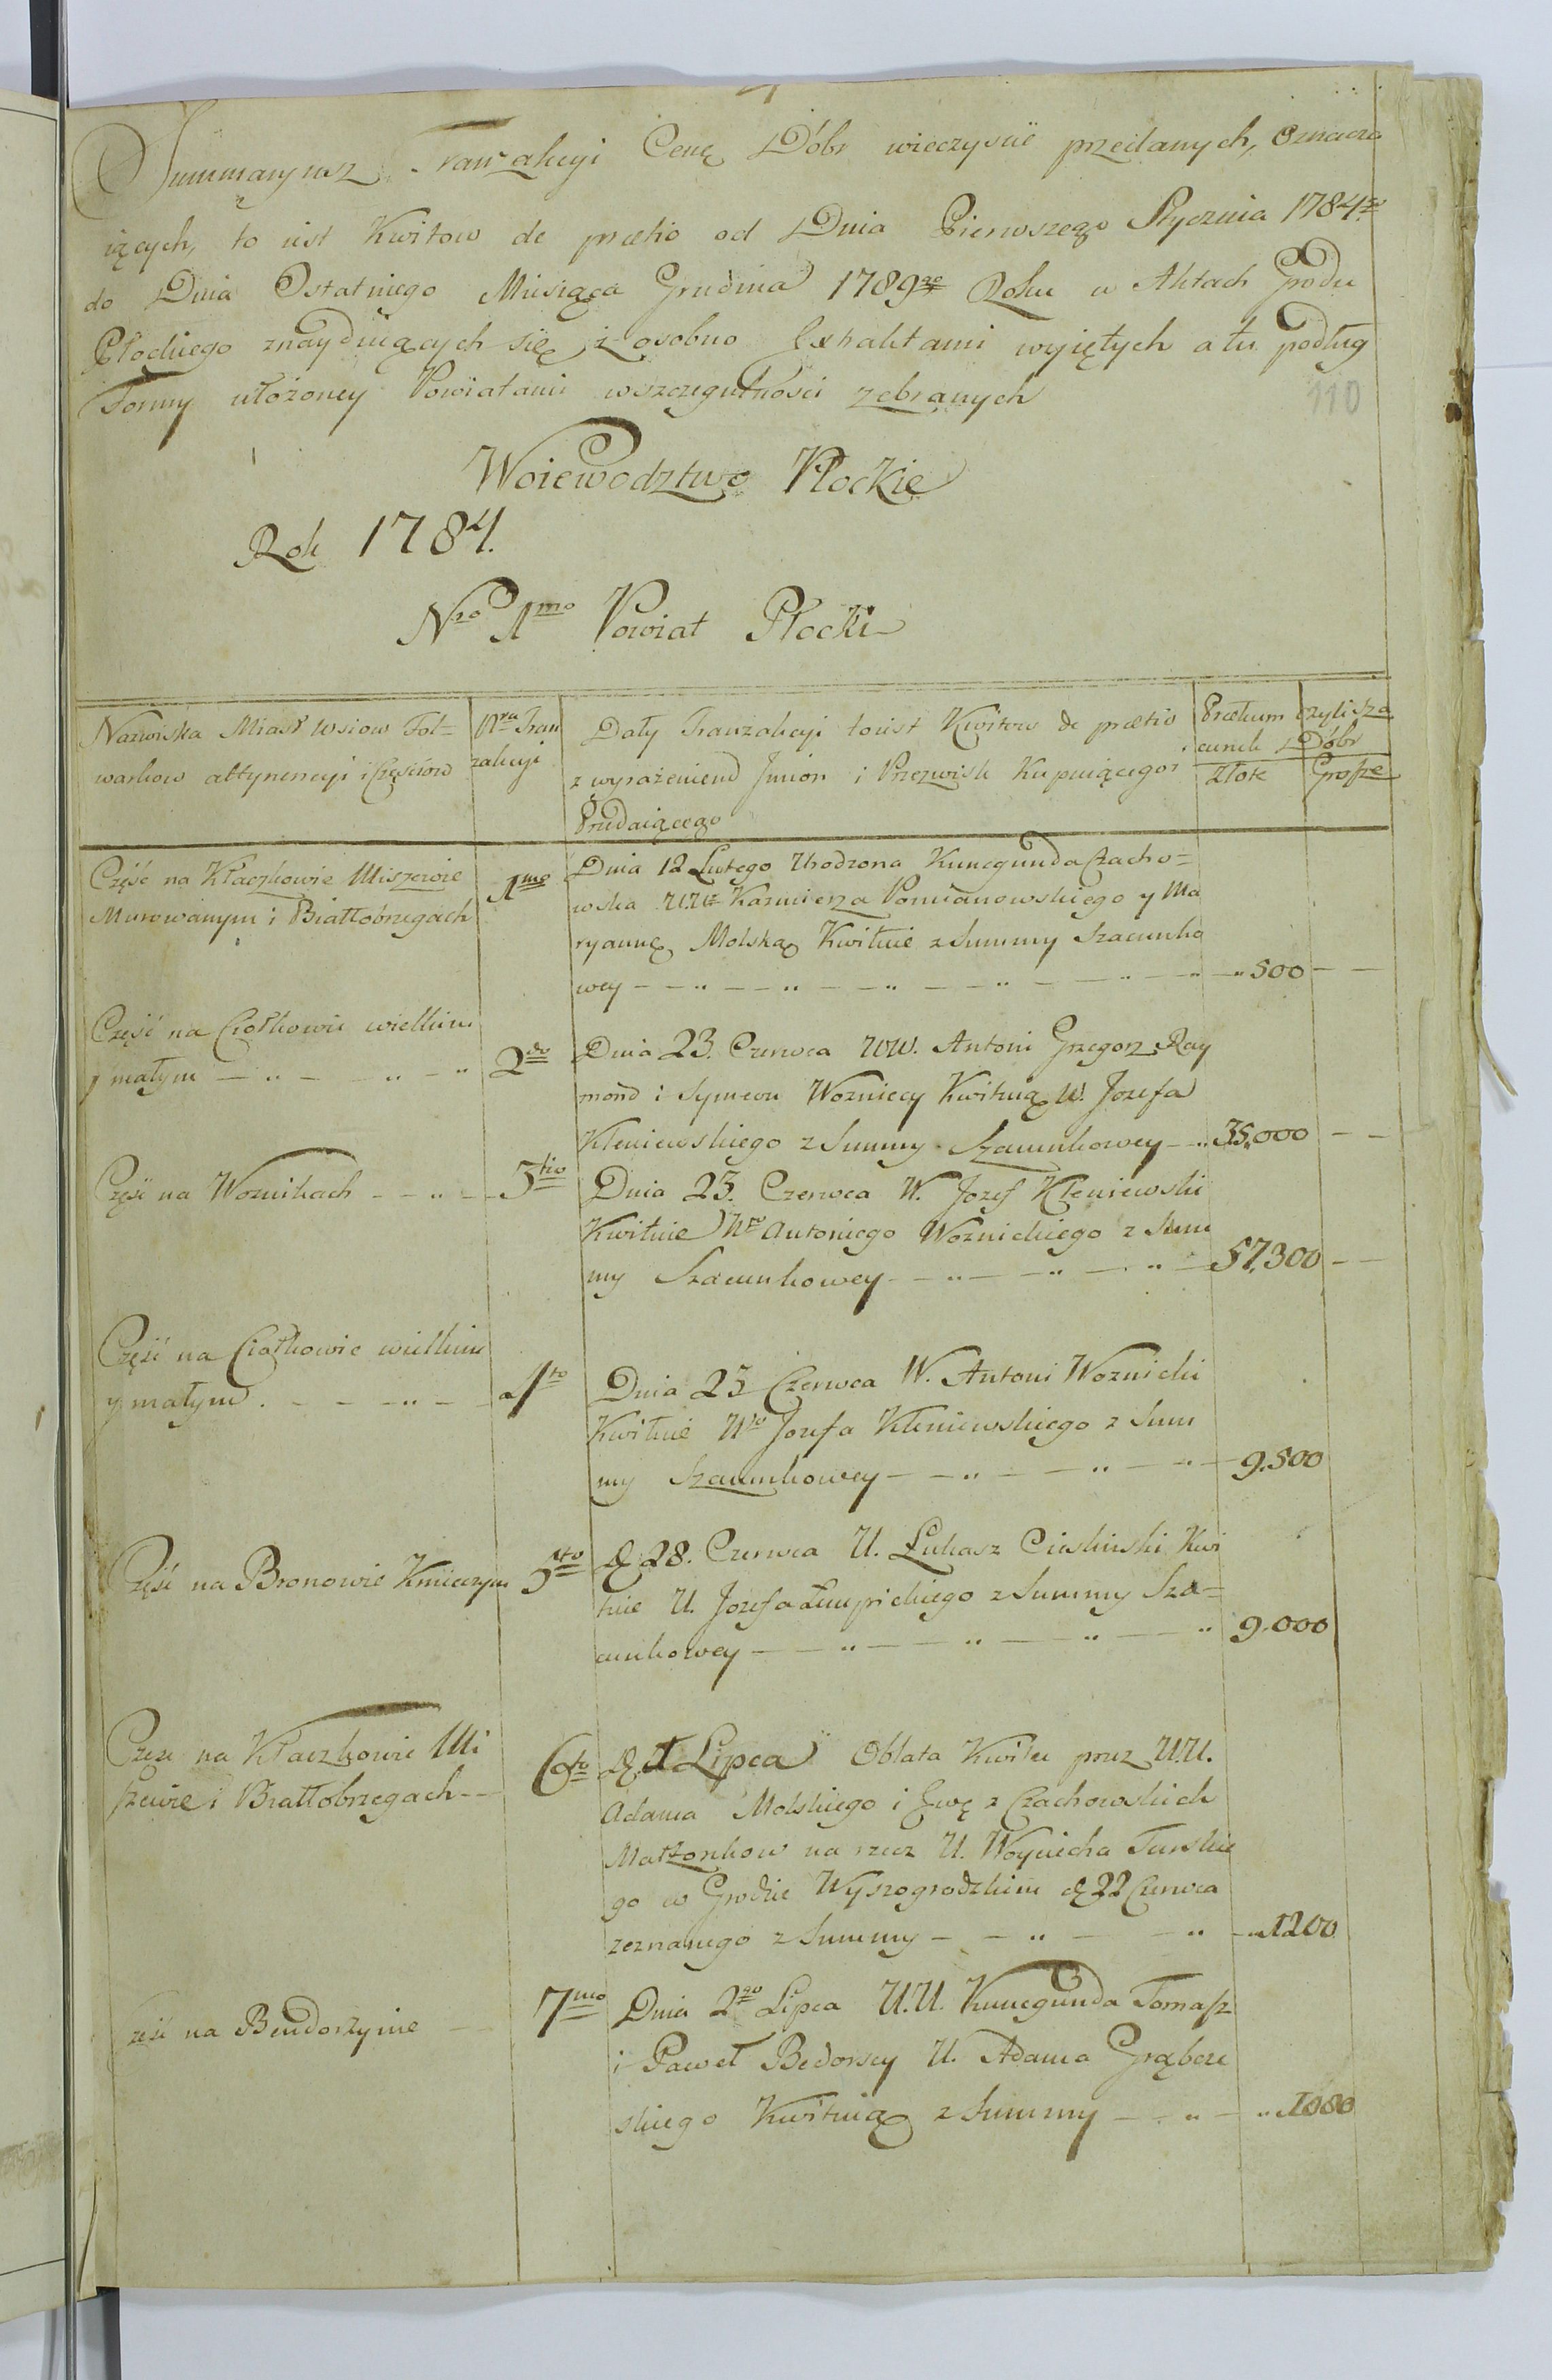 Summaryusz Tranzakcyi Cenę Dóbr wieczyscie przedanych, Oznacza
iących, to iest Kwitow de pretio od Dnia Pierwszego Stycznia 1784go
do Dnia Ostatniego Miesiąca Grudnia 1789go Roku w Aktach Grodu
Płockiego znayduiących się, z osobno Extraktami wyiętych a tu podług
Formy ułożoney Powiatami wszczegulności zebranych
110
Woiewodztwo Płockie
Rok 1784.
Nro 1mo Powiat Płocki
Nazwiska Miast Wsiow Fol=
warkow attynencyi i Częściow
Nra Tran
zakcyi
Daty Tranzakcyi to iest Kwitow de pretio
z wyrażeniem Jmion i Przezwisk Kupuiącego i
Przedaiącego
Pretium czyli Sza
cunek Dóbr
Złote
Grosze
Część na Kłaczkowie Miszewie
Murowanym i Białłobrzegach
1mo
Dnia 12 Lutego Urodzona Kunegunda Czacho=
wska UUr Kazmierza Pomianowskiego y Ma
ryannę Molską Kwituie z Summy Szacunko
wey 500
Część na Ciołkowie wielkim
y małym
2do
Dnia 23. Czerwca WW. Antoni Grzegorz Ray
mond i Symeon Wozniccy Kwituią W. Jozefa
Kłeniewskiego z Summy Szacunkowey 35,000
Część na Woznikach
3tio
Dnia 23. Czerwca W. Jozef Kłeniewski
Kwituie Wo Antoniego Woznickiego z Sum
my Szacunkowey 57,300
Część na Ciołkowie wielkim
y małym
4to
Dnia 23 Czerwca W. Antoni Woznicki
Kwituie Wo Jozefa Kłeniewskiego z Sum
my Szacunkowey 9.500
Część na Bronowie Kmiecym
5to
D. 28. Czerwca U. Łukasz Ciesliński Kwi
tuie U. Jozefa Łempickiego z Summy Sza=
cunkowey 9.000
Częsc na Kłaczkowie Mi
szewie i Białłobrzegach
6to
D. 1 Lipca Oblata Kwitu przez U.U.
Adama Molskiego i Ewę z Czachowskich
Małżonkow na rzecz U. Woyciecha Turskie
go w Grodzie Wyszogrodzkim d. 22 Czerwca
zeznanego z Summy 1200
zęść na Bendorzynie
7mo
Dnia 2go Lipca U.U. Kunegunda Tomasz
i Paweł Bedorscy U. Adama Grąbcze
skiego Kwituią z Summy 1080